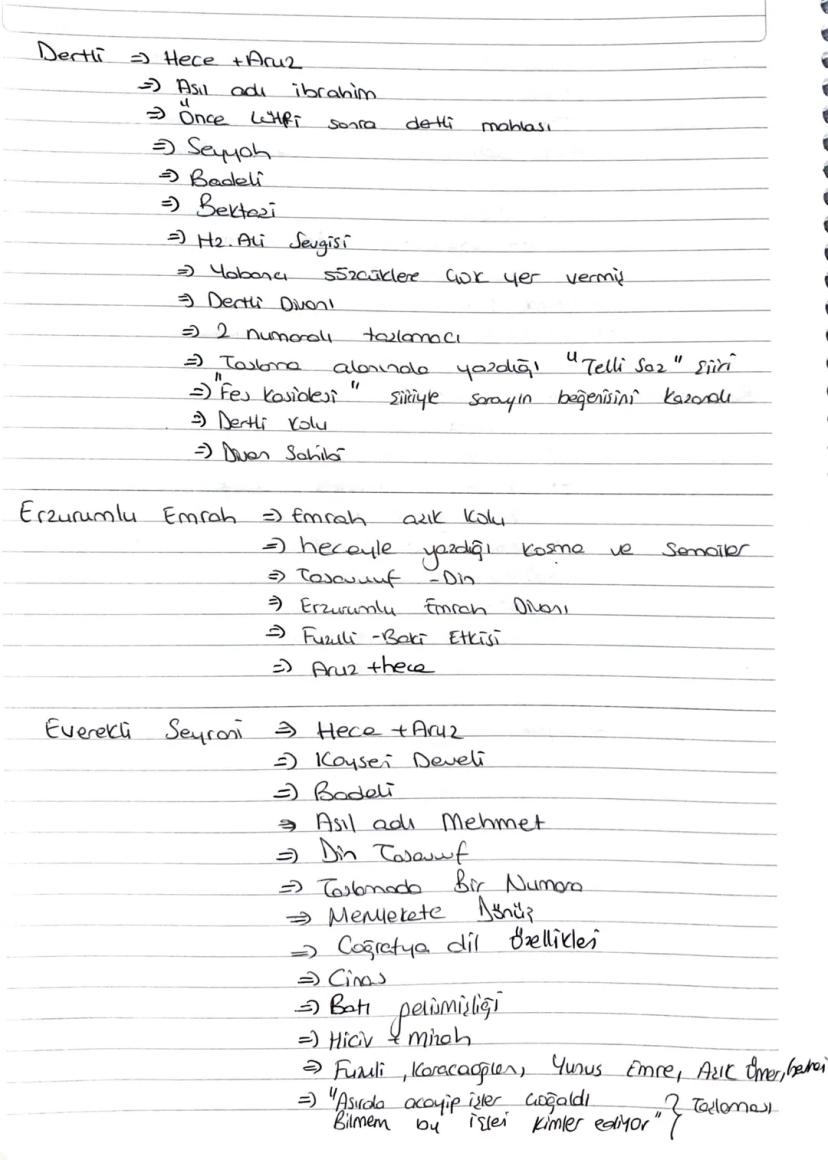 Dertli ⇒ Hece + Aruz
⇒ Asıl adı ibrahim
⇒ Önce Lütfi sonra detli mahlası
⇒ Seyyah
⇒ Badeli
⇒ Bektaşi
⇒ Hz. Ali Sevgisi
⇒ Yabancı sözcüklere çok yer vermiş
⇒ Dertli Divanı
⇒ 2 numaralı taşlamacı
⇒ Taşlama alanında yazdığı "Telli Saz" şiiri
⇒ "Fes Kasidesi" şiiriyle sarayın beğenisini kazandı
⇒ Dertli Kolu
⇒ Divan Sahibi
Erzurumlu Emrah ⇒ Emrah aşık Kolu
⇒ heceyle yazdığı koşma ve Semailer
⇒ Tasavvuf - Din
⇒ Erzurumlu Emrah Divanı
⇒ Fuzuli - Baki Etkisi
⇒ Aruz + hece
Everekli Seyrani ⇒ Hece + Aruz
⇒ Kayseri Develi
⇒ Badeli
⇒ Asıl adı Mehmet
⇒ Din Tasavvuf
⇒ Taşlamada Bir Numara
⇒ Memlekete Dönüş
⇒ Coğrafya dil özellikleri
⇒ Cinas
⇒ Batı
⇒ Hiciv + mizah
⇒ Fuzuli, Karacaoğlan, Yunus Emre, Aşık Ömer,
⇒ "Asırda acayip işler çoğaldı } Taşlaması
Bilmem bu işleri kimler ediyor"